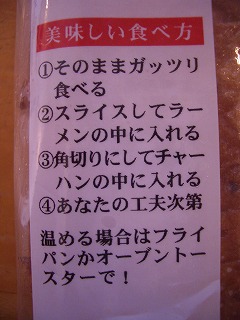 美味しい食べ方
①そのままガッツリ
食べる
②スライスしてラー
メンの中に入れる
③角切りにしてチャー
ハンの中に入れる
④あなたの工夫次第
温める場合はフライ
パンかオーブントー
スターで!